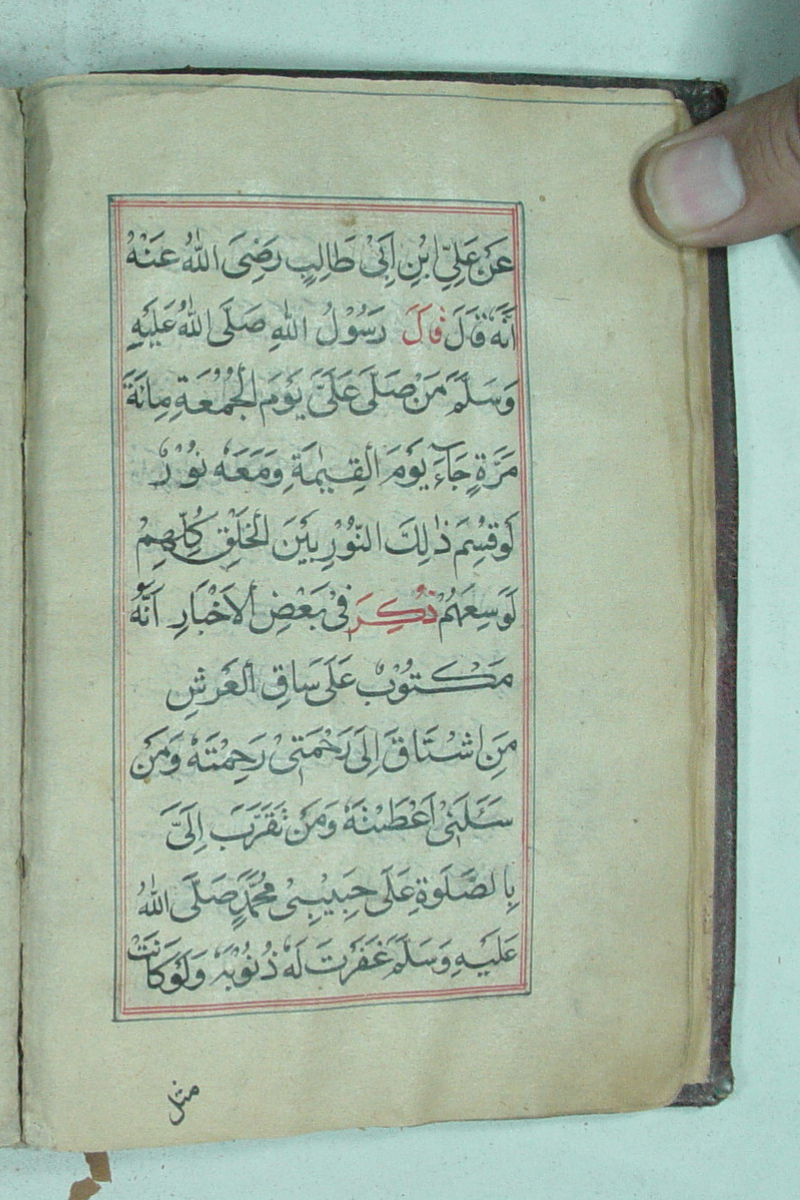 عَنْ عَلِيِّ ابْنِ اَبِيْ طَالِبٍ رَضِيَ اللّٰهُ عَنْهُ
اَنَّهٗ قَالَ قَالَ رَسُوْلُ اللّٰهِ صَلَّى اللّٰهُ عَلَيْهِ
وَسَلَّمَ مَنْ صَلّٰى عَلَيَّ يَوْمَ الْجُمُعَةِ مِائَةَ
مَرَّةٍ جَآءَ يَوْمَ الْقِيٰمَةِ وَمَعَهٗ نُوْرٌ
لَوْ قُسِمَ ذٰلِكَ النُّوْرُ بَيْنَ الْخَلْقِ كُلِّهِمْ
لَوَسِعَهُمْ ذُكِرَ فِيْ بَعْضِ الْاَخْبَارِ اَنَّهٗ
مَكْتُوْبٌ عَلٰى سَاقِ الْعَرْشِ
مَنِ اشْتَاقَ اِلٰى رَحْمَتِيْ رَحِمْتُهٗ وَمَنْ
سَئَلَنِيْ اَعْطَيْتُهٗ وَمَنْ تَقَرَّبَ اِلَيَّ
بِالصَّلٰوةِ عَلٰى حَبِيْبِيْ مُحَمَّدٍ صَلَّى اللّٰهُ
عَلَيْهِ وَسَلَّمَ غَفَرْتُ لَهٗ ذُنُوْبَهٗ وَلَوْ كَانَتْ
مثل